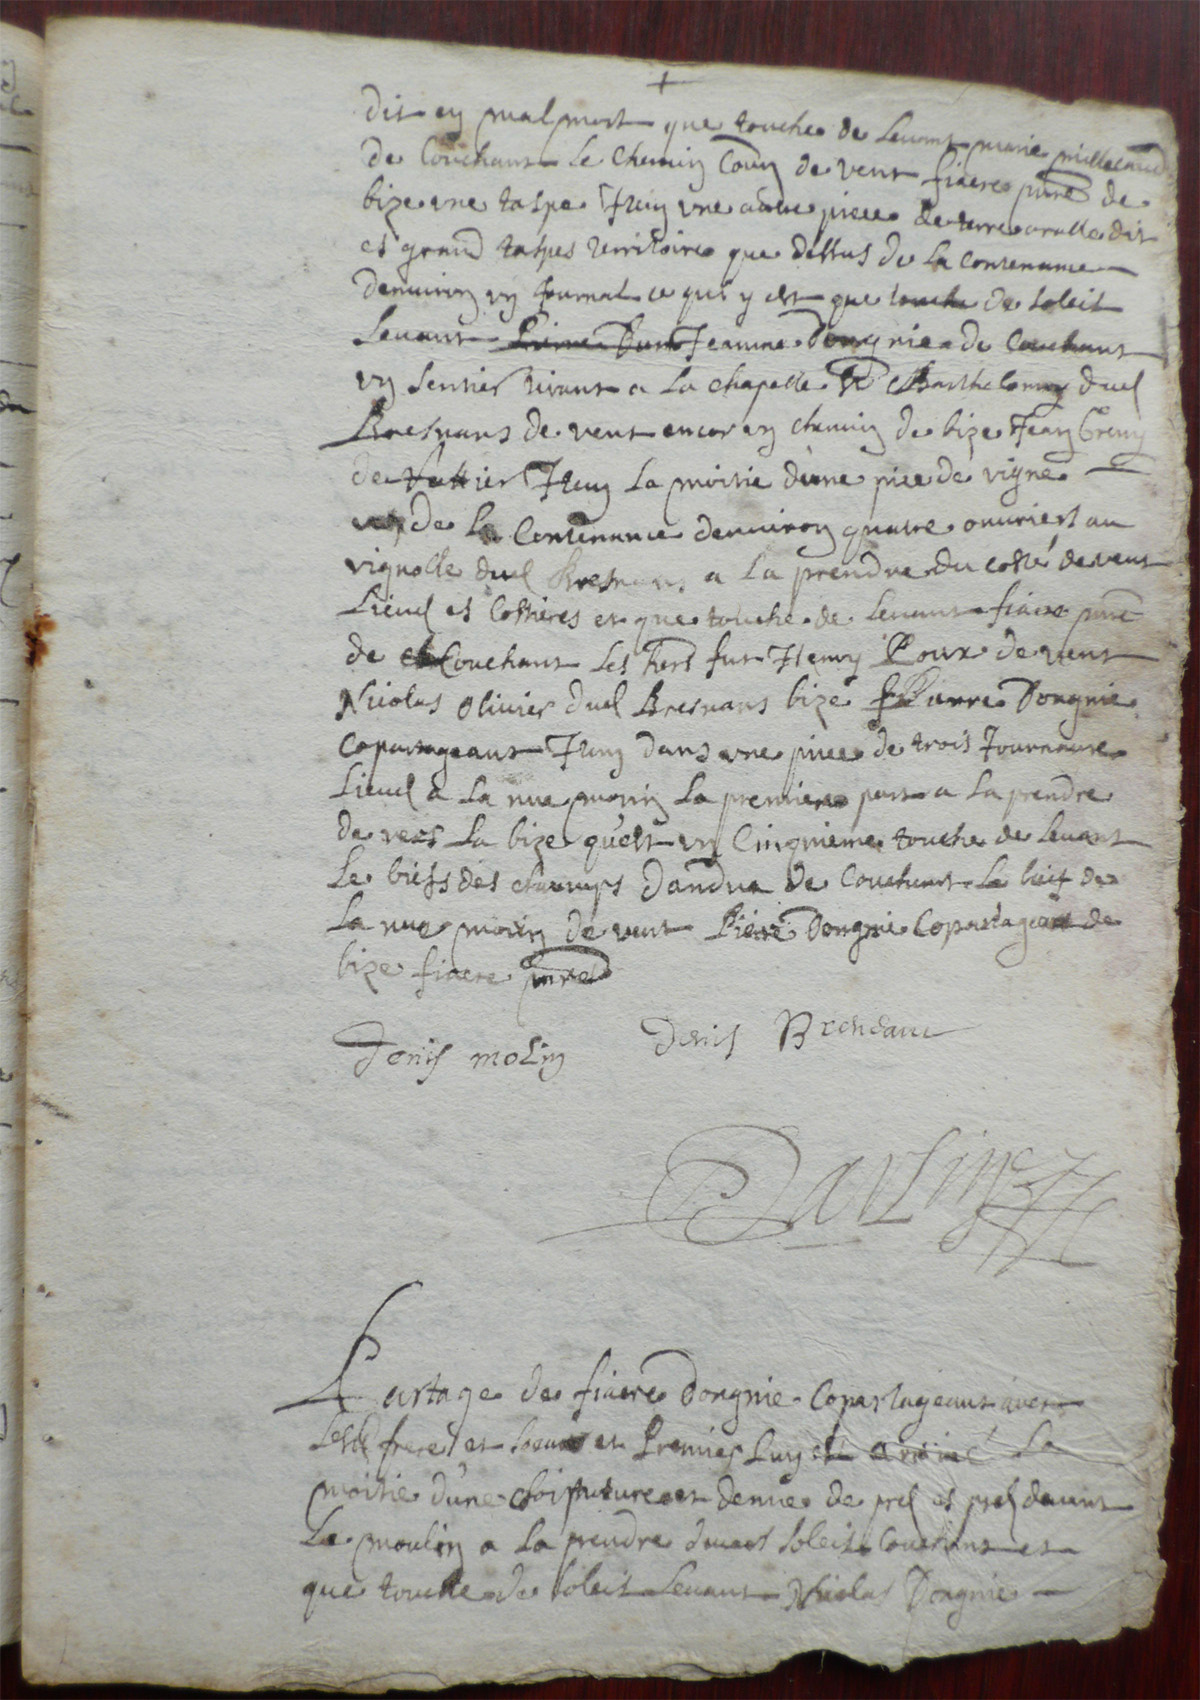 +
dit en malmort que touche de levant marie
de Couchant Le Chemin Comũ de vent fiacre de
bize une taspe Item une autre piece de terre aralle dit
es grand taspes territoire que dessus de La Contenance
denviron un Journal ce qu'il y est que touche de soleil
Levant Pierre Jeanne Dongnie de Couchant
un sentier tirant a La Chapelle St Barthelemy dud
Bresnans de vent encor un chemin de bize Jean
de Item La moitie d'une piece de vigne
de La Contenance denviron quatre ouvriers au
vignolle dud Bresnans a La prendre du costé de vent
Lieud es Costieres et que touche de Levant fiacre
de Couchant Les hers fut Henry Poux de vent
Nicolas Olivier dud Bresnans bize Pierre Dongnie
Copartageant Item dans une piece de trois Journaux
Lieud a La nue morin La premiere part a La prendre
de vers La bize qu'est un Cinquieme touche de Levant
Le biefs des champs dandux de Couchant Le bief de
La nue morin de vent Pierre Dongnie Copartageant de
bize fiacre
Denis molin Denis Brendant
Partage de fiacre Dongnie Copartageant avec
Lesd freres et soeurs et Premier Luy est arrivé La
moitie d'une et demie de prel es prel devant
Le moulin a La prendre devers soleil Couchant et
que touche de soleil Levant Nicolas Dongnie